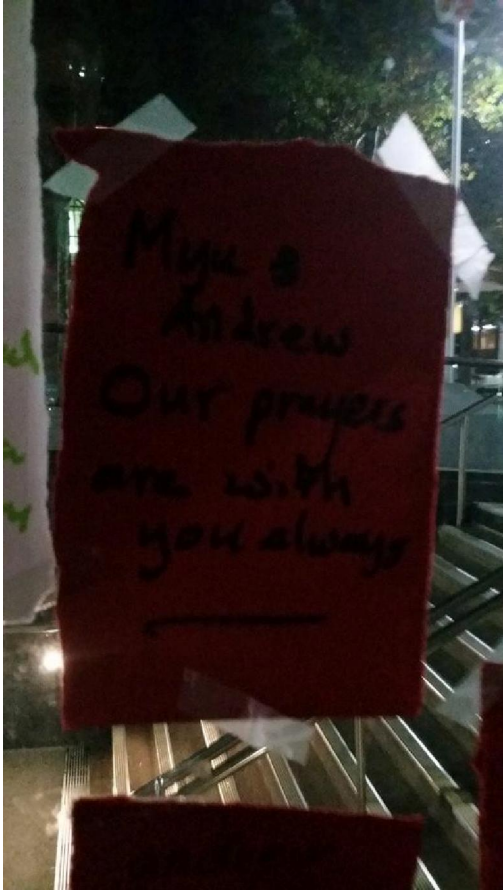 Myu &
Andrew
Our prayers
are with
you always